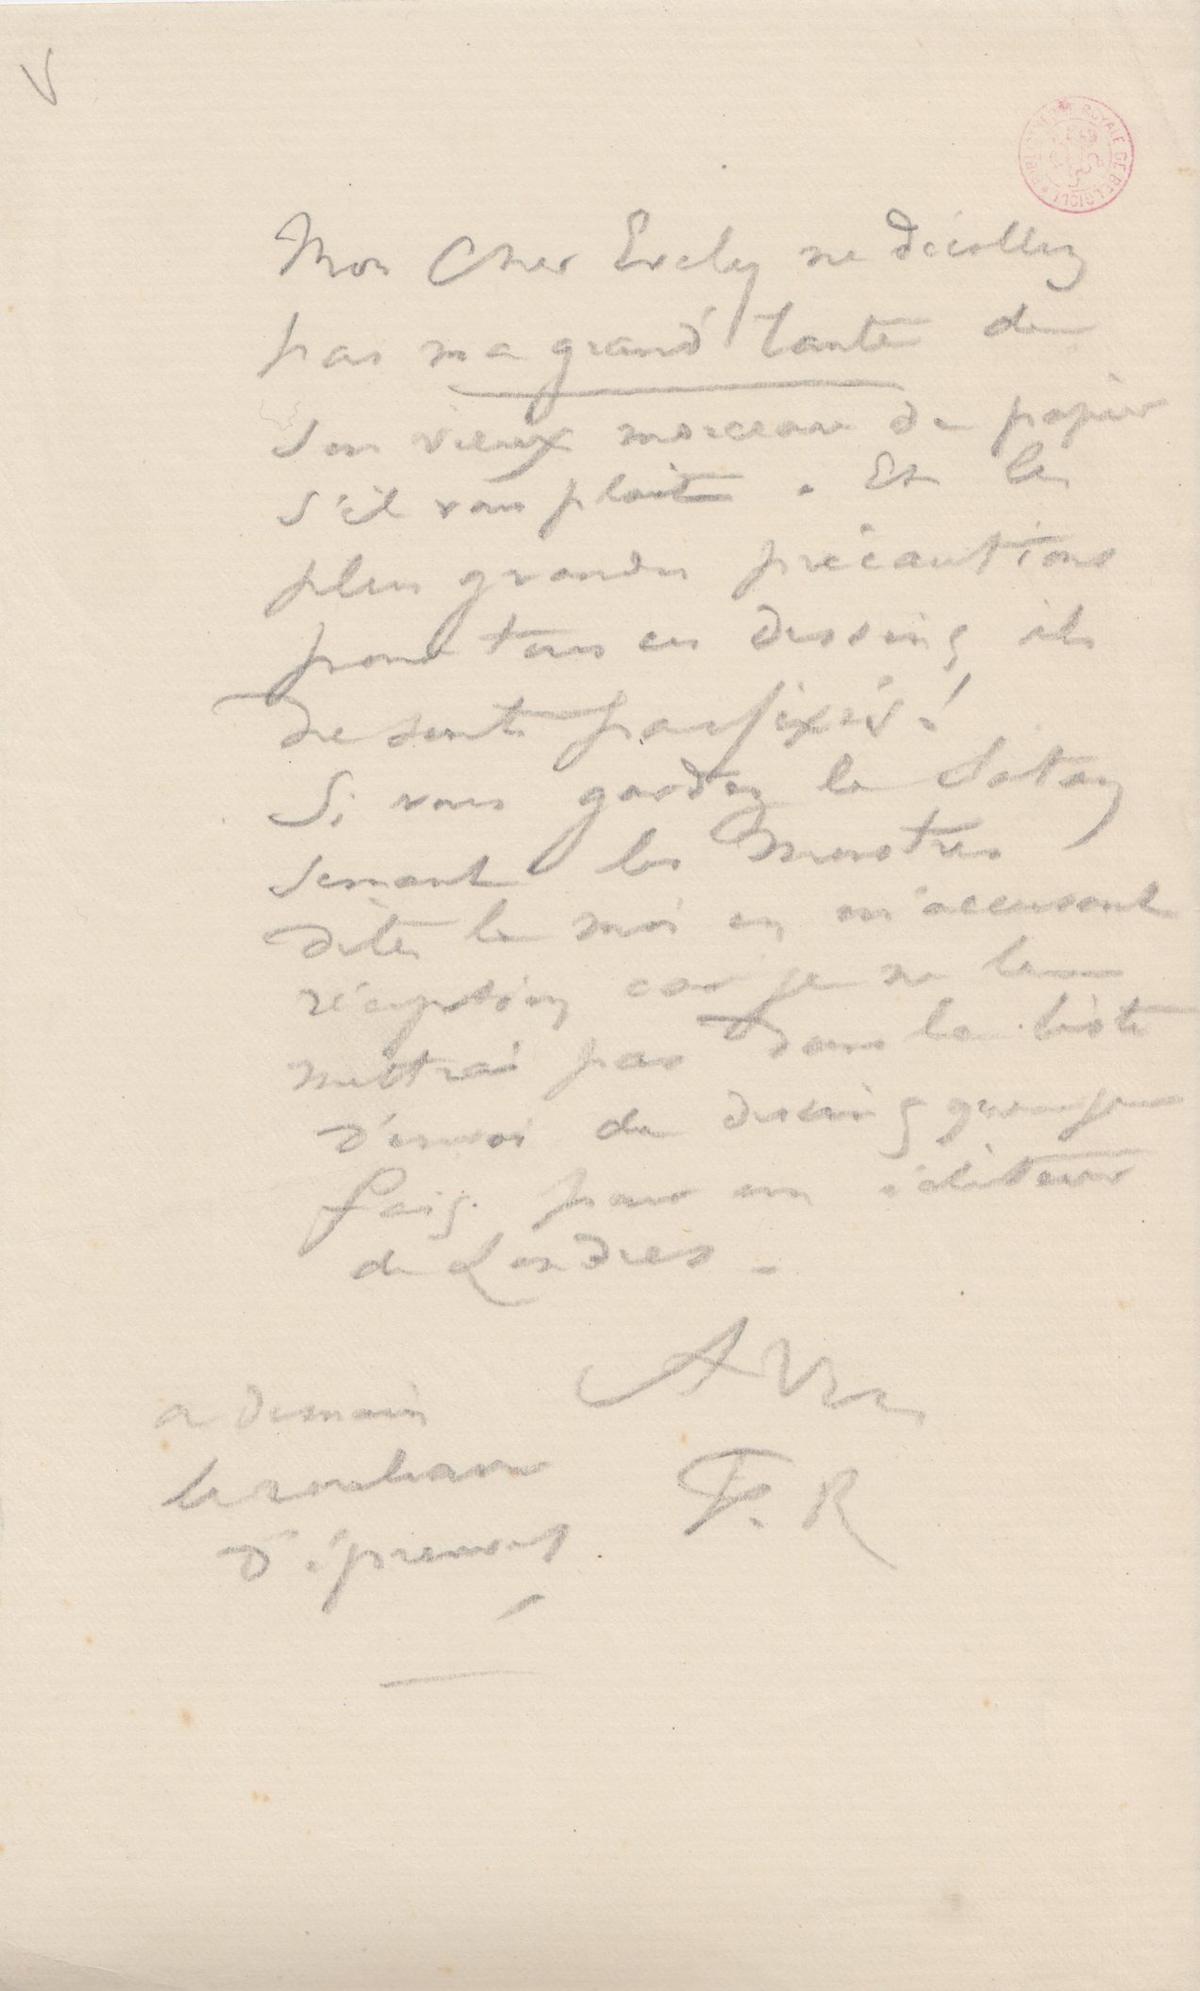 BIBLIOTHÈQUE ROYALE DE BELGIQUE
Mon Cher Evely ne décollez
pas ma grand' tante de
son vieux morceau de papier
s'il vous plait. Et les
plus grandes précautions
pour tous ces dessins ils
ne sont pas fixés!
Si vous gardez le Satan
semant les Monstres
dites le moi en m'accusant
réception car je ne le
mettrai pas dans la liste
d'envoi de dessins que je
fais pour un éditeur
de Londres.
A Vs
F. R
a demain
le rouleau
d'épreuves